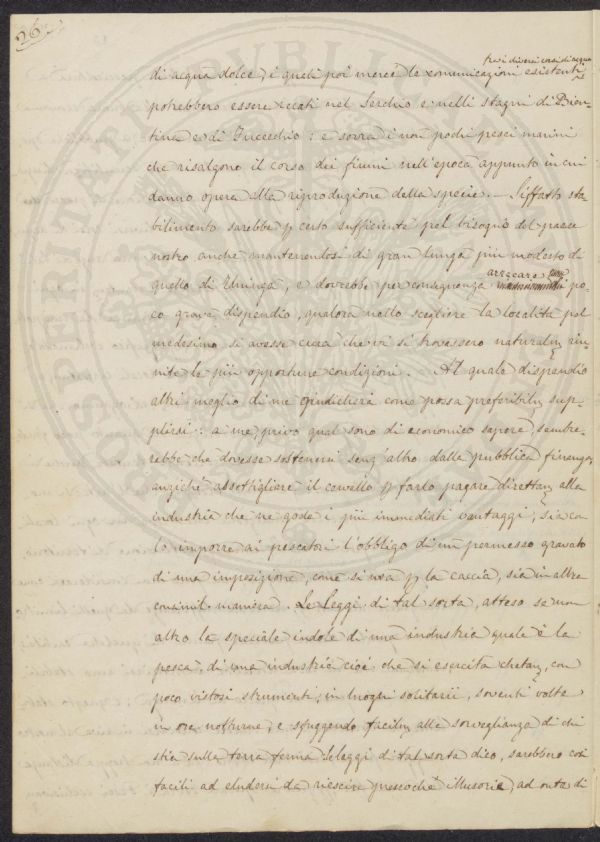 26.
fra i diversi corsi di acqua
di acqua dolce, i quali poi mercè le comunicazioni esistenti
potrebbero essere recati nel Serchio e nelli stagni di Bien-
tina e di Fucecchio: e sovra i non pochi pesci marini
che risalgono il corso dei fiumi nell'epoca appunto in cui
danno opera alla riproduzione della specie. — Siffatto sta
bilimento sarebbe p certo sufficiente pel bisogno del paese
nostro anche mantenendosi di gran lunga più modesto di
quello di Uninga, e dovrebbe per conseguenza arrecare pure po-
co grave dispendio, qualora nello scegliere la località pel
medesimo si avesse cura che vi si trovassero naturalm riu-
nite le più opportune condizioni. Al quale dispendio
altri meglio di me giudicherà come possa preferibilm sup-
plirsi: a me, privo qual sono di economico sapere, sembre-
rebbe che dovesse sostenersi senz'altro dalla pubblica finanza,
anzichè assottigliare il cervello p farlo pagare direttam alla
industria che ne gode i più immediati vantaggi, sia co
lo imporre ai pescatori l'obbligo di un permesso gravato
di una imposizione, come si usa p la caccia, sia in altra
consimil maniera. Le Leggi di tal sorta, atteso se non
altro la speciale indole di una industria quale è la
pesca, di una industria cioè che si esercita chetam, con
poco vistosi strumenti, in luoghi solitarii, soventi volte
in ore notturne, e sfuggendo facilm alla sorveglianza di chi
stia sulla terra ferma le leggi di tal sorta dico, sarebbero così
facili ad eludersi da riescire pressochè illusorie, ad onta di